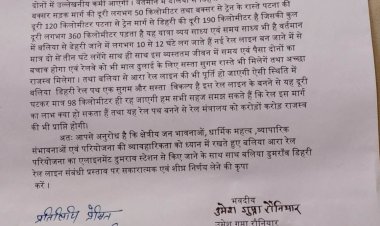 दोनों में उल्लेखनीय कमी आएगी। वर्तमान में
बक्सर सड़क मार्ग की दूरी लगभग 50 किलोमीटर तथा बक्सर से ट्रेन के रास्ते पटना की
दूरी 120 किलोमीटर पटना से ट्रेन मार्ग से डिहरी की दूरी 190 किलोमीटर है जिसकी कुल
दूरी लगभग 360 किलोमीटर पड़ता है यह यात्रा व्यय साध्य एवं समय साध्य भी है वर्तमान
में बलिया से डेहरी जाने में लगभग 10 से 12 घंटे लग जाते हैं नई रेल लाइन बन जाने में से
मात्र दो से तीन घंटे लगेंगे साथ ही साथ इस व्यस्ततम जीवन में समय एवं पैसा दोनों का
बचाव होगा एवं रेलवे को भी माल ढुलाई के लिए सस्ता सुगम रास्ते भी मिलेंगे तथा अच्छा
राजस्व मिलेगा। तथा बलिया से आरा रेल लाइन की भी पूर्ति हो जाएगी ऐसी स्थिति में
बलिया डिहरी रेल पथ एक सुगम और सस्ता विकल्प है इस रेल लाइन के बनने से यह दूरी
घटकर मात्र 98 किलोमीटर ही रह जाएगी हम सभी सहज समझ सकते हैं कि रेल इस मार्ग
का लाभ क्या हो सकता है तथा यह रेल पथ बनने से रेल मंत्रालय को करोड़ों करोड़ राजस्व
की भी प्राप्ति होगी।
अतः आपसे अनुरोध है कि क्षेत्रीय जन भावनाओं, धार्मिक महत्व ,व्यापारिक
संभावनाओं एवं परियोजना की व्यावहारिकता को ध्यान में रखते हुए बलिया आरा रेल
परियोजना का एलाइनमेंट डुमराव स्टेशन से किए जाने के साथ साथ बलिया डुमराँव डिहरी
रेल लाइन संबंधी प्रस्ताव पर सकारात्मक एवं शीघ्र निर्णय लेने की कृपा
करें ।
भवदीय
प्रतिलिपि प्रेषित
उमेश गुप्ता रौनियार
उमेश गुप्ता रौनियार